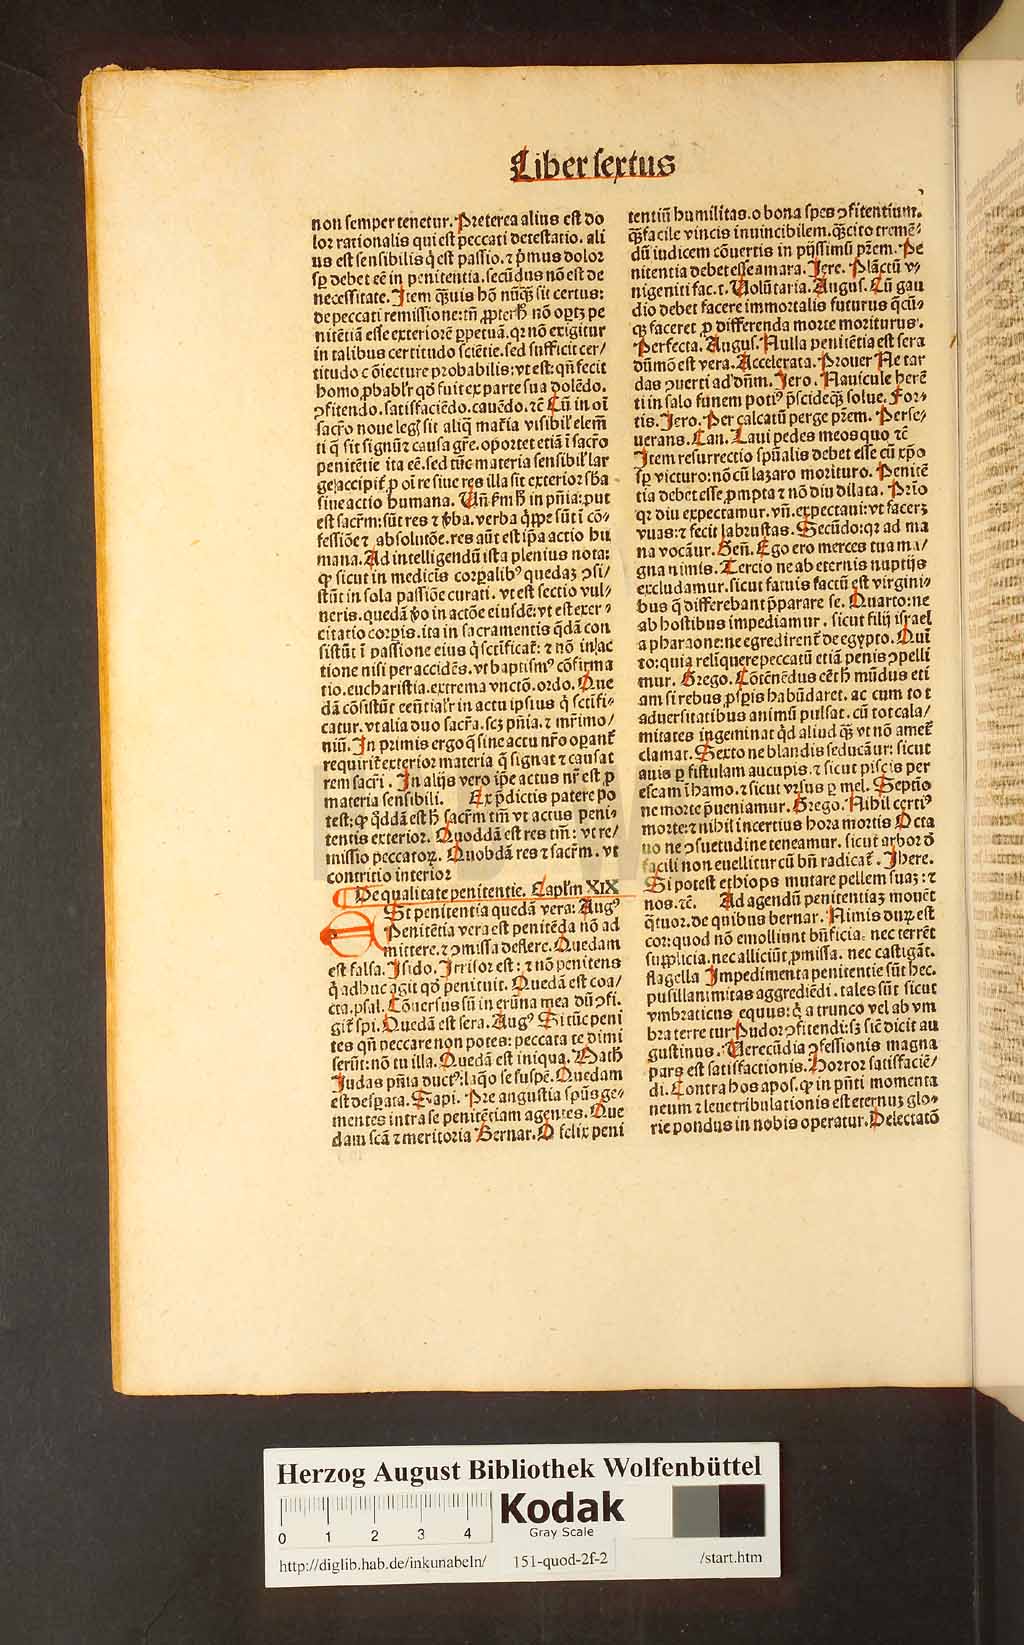 Liber sextus
non semper tenetur. Preterea alius est do
lor rationalis qui est peccati detestatio. ali
us est sensibilis q̇ est passio. ⁊ p̄mus dolor
sꝑ debet eē in penitentia. secūdus nō est de
necessitate. Item q̄ȝuis hō nūq̄ȝ sit certus:
de peccati remissione: tn̄ ꝓpterh̄ nō oꝑtȝ pe
nitētiā esse exteriorē ꝑpetuā. qꝛ nō exigitur
in talibus certitudo sciētie. sed sufficit cer/
titudo cōiecture probabilis: vt est: qn̄ fecit
homo ꝓbabłr qd̄ fuit ex parte sua dolēdo.
ꝯfitendo. satisfaciēdo. cauēdo. ⁊c̄ Cū in oī
sacr̄o noue legꝭ sit aliq̄ mat̄ia visibiľ elem̄
ti q̄ sit signū ⁊ causa gr̄e. oportet etiā ī sacr̄o
penitētie ita eē. sed tūc materia sensibiľ lar
ge accipit̄ ꝓ oī re siue res illa sit exterior sb̄a
siue actio humana. Vn̄ ẜm h̄ in pn̄ia: put
est sacr̄m: sūt res ⁊ v̄ba. verba q̇ppe sūt ī cō
fessiōe ⁊ absolutōe. res aūt est ip̄a actio hu
mana. Ad intelligendū ista plenius nota:
ꝙ sicut in medicīs corꝑalibꝰ quedaȝ ꝯsi/
stūt in sola passiōe curati. vt est sectio vul/
neris. quedā v̄o in actōe eiusdē: vt est exer
citatio corꝑis. ita in sacramentis q̇dā con
sistūt ī passione eius q̇ sc̄tificat̄: ⁊ nō in ac
tione nisi per accidēs. vt baptismꝰ cōfirma
tio. eucharistia. extrema vnctō. ordo. Que
dā cōsistūt eēntialr̄ in actu ipsius q̇ sctifi
catur. vt alia duo sacr̄a. scȝ pn̄ia. ⁊ mr̄imo/
niū. In primis ergo q̄ sine actu nr̄o oꝑant̄
requirit̄ exterior materia q̄ signat ⁊ causat
rem sacri. In alijs vero ip̄e actus nr̄ est ꝓ
materia sensibili. Ex p̄dictis patere po
test: ꝙ q̇ddā est h̄ sacr̄m tm̄ vt actus peni
tentis exterior. Quoddā est res tm̄: vt re/
missio peccatoꝝ. Quobdā res ⁊ sacr̄m. vt
contritio interior
De qualitate penitentie. Capl̄m XIX
Est penitentia quedā vera: Augꝰ
Penitētia vera est penitēda nō ad
mittere. ⁊ ꝯmissa deflere. Quedam
est falsa. Isido. Irrisor est: ⁊ nō penitens
q̇ adhuc agit qd̄ penituit. Quedā est coa/
cta. psal. Cōuersus sū in erūna mea dū ꝯfi.
git̄ spi. Quedā est sera. Augꝰ Si tūc peni
tes qn̄ peccare non potes: peccata te dimi
serūt: nō tu illa. Quedā est iniqua. Math
Iudas pn̄ia ductꝰ: laq̄o se suspē. Quedam
est desꝑata. Sapi. Pre angustia spūs ge
mentes intra se penitētiam agentes. Que
dam scā ⁊ meritoria Bernar. O felix peni
tentiū humilitas. o bona spes ꝯfitentium.
q̄ȝ facile vincis inuincibilem. q̄ȝ cito tremē
dū iudicem cōuertis in pijssimū pr̄em. Pe
nitentia debet esse amara. Iere. Plāctū v
nigeniti fac. t. Volūtaria. Augus. Cū gau
dio debet facere immortalis futurus q̄cū
qȝ faceret ꝓ differenda morte moriturus.
Perfecta. Augus. Nulla penitētia est sera
dūmō est vera. Accelerata. Prouer Ne tar
das ꝯuerti ad dn̄m. Iero. Nauicule herē
ti in salo funem potiꝰ p̄scideqȝ solue. For
tis. Iero. Per calcatū perge pr̄em. Perse
uerans. Can. Laui pedes meos quo ⁊c̄
Item resurrectio spūalis debet esse cū xp̄o
sꝑ victuro: nō cū lazaro morituro. Penitē
tia debet esse ꝓmpta ⁊ nō diu dilata. Prīo
qꝛ diu expectamur. vn̄. expectaui: vt facerȝ
vuas: ⁊ fecit labrustas. Secūdo: qꝛ ad ma
na vocāur. Gen̄. Ego ero merces tua ma/
gna nimis. Tercio ne ab eternis nuptijs
excludamur. sicut fatuis factū est virgini
bus q̄ differebant p̄parare se. Quarto: ne
ab hostibus impediamur. sicut filij israel
a pharaone: ne egredirent̄ de egypto. Quī
to: quia relīquere peccatū etiā penis ꝯpelli
mur. Grego. Cōtēnēdus cēt h̄ mūdus eti
am si rebus ꝓspis habūdaret. ac cum tot
aduersitatibus animū pulsat. cū tot cala/
mitates ingeminat q̇d aliud q̄ȝ vt nō amet̄
clamat. Sexto ne blandis seducāur: sicut
auis ꝑ fistulam aucupis. ⁊ sicut piscis per
escam ī hamo. ⁊ sicut vrsus ꝑ mel. Septīo
ne morte p̄ueniamur. Grego. Nihil certiꝰ
morte: ⁊ nihil incertius hora mortis Octa
uo ne ꝯsuetudine teneamur. sicut arbor d̄
facili non euellitur cū bn̄ radicat̄. Ihere.
Si potest ethiops mutare pellem suaȝ: ⁊
nos. ⁊c̄. Ad agendū penitentiaȝ mouēt
q̄tuor. de quibus bernar. Nimis duꝝ est
cor: quod nō emolliunt bn̄ficia: nec terrēt
supplicia. nec alliciūt ꝓmissa. nec castigāt.
flagella Impedimenta penitentie sūt hec.
pusillanimitas aggrediēdi. tales sūt sicut
vmbraticus equus: q̇ a trunco vel ab vm
bra terretur Pudor ꝯfitendi: sȝ sic̄ dicit au
gustinus. Verecūdia ꝯfessionis magna
pars est satisfactionis. Horror satisfaciē/
di. Contra hos apos. ꝙ in pn̄ti momenta
neum ⁊ leue tribulationis est eternuȝ glo
rie pondus in nobis operatur. Delectatō
Herzog August Bibliothek Wolfenbüttel
0 1 2 3 4
Kodak
Gray Scale
http://diglib.hab.de/inkunabeln/ 151-quod-2f-2 /start.htm